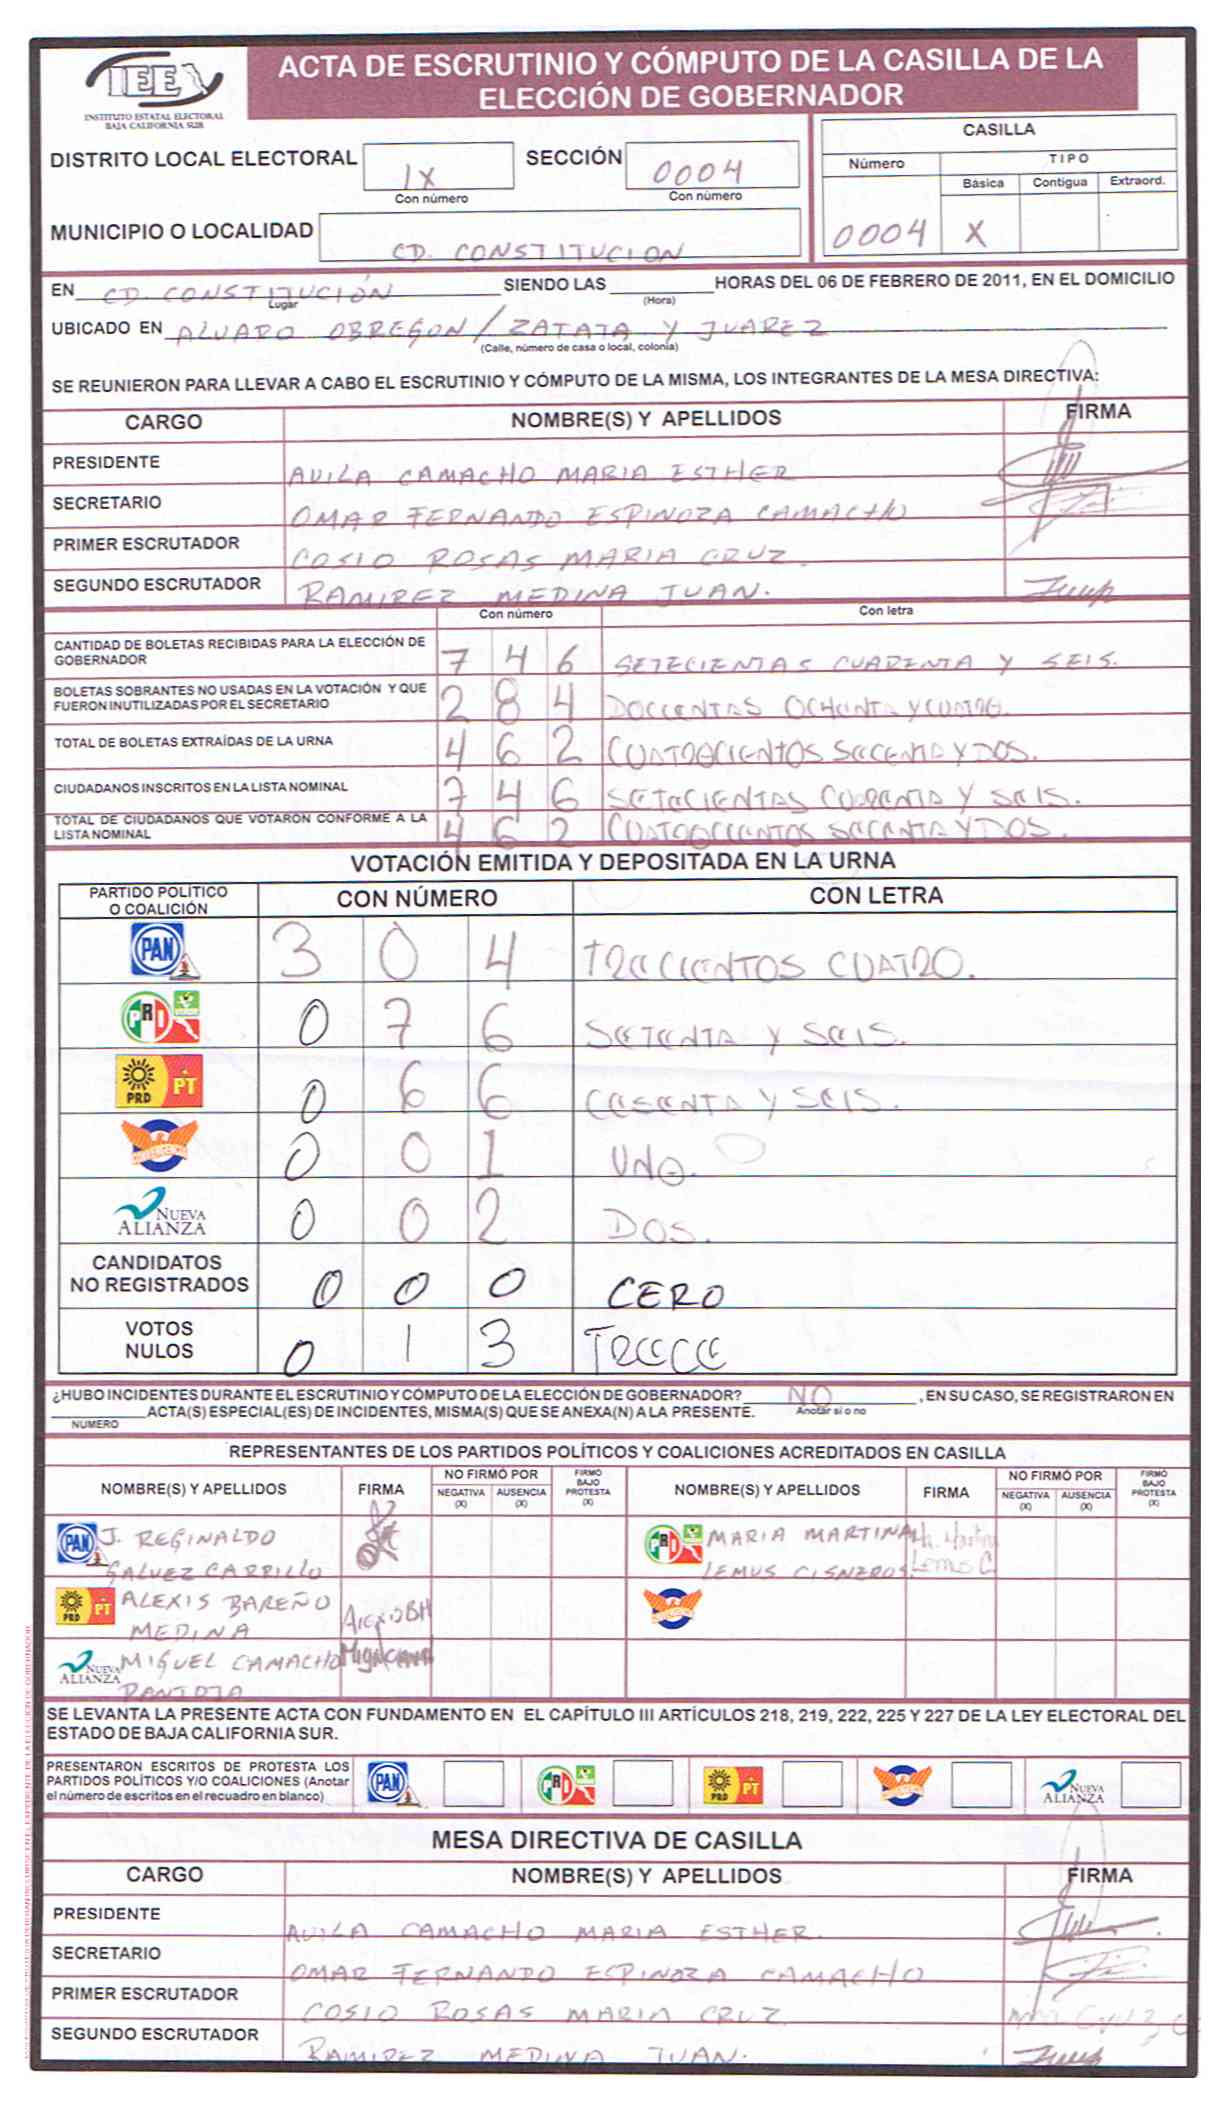 IEE
INSTITUTO ESTATAL ELECTORAL
BAJA CALIFORNIA SUR
ACTA DE ESCRUTINIO Y CÓMPUTO DE LA CASILLA DE LA
ELECCIÓN DE GOBERNADOR
DISTRITO LOCAL ELECTORAL IX SECCIÓN 0004
Con número Con número
MUNICIPIO O LOCALIDAD CD. CONSTITUCION
CASILLA
Número TIPO
Básica Contigua Extraord.
0004 X
EN CD. CONSTITUCIÓN SIENDO LAS HORAS DEL 06 DE FEBRERO DE 2011, EN EL DOMICILIO
Lugar (Hora)
UBICADO EN ALVARO OBREGON/ZATATA Y JUAREZ
(Calle, número de casa o local, colonia)
SE REUNIERON PARA LLEVAR A CABO EL ESCRUTINIO Y CÓMPUTO DE LA MISMA, LOS INTEGRANTES DE LA MESA DIRECTIVA:
CARGO NOMBRE(S) Y APELLIDOS FIRMA
PRESIDENTE AVILA CAMACHO MARIA ESTHER
SECRETARIO OMAR FERNANDO ESPINOZA CAMACHO
PRIMER ESCRUTADOR COSIO ROSAS MARIA CRUZ.
SEGUNDO ESCRUTADOR RAMIREZ MEDINA JUAN.
Con número Con letra
CANTIDAD DE BOLETAS RECIBIDAS PARA LA ELECCIÓN DE
GOBERNADOR 7 4 6 SETECIENTAS CUARENTA Y SEIS.
BOLETAS SOBRANTES NO USADAS EN LA VOTACIÓN Y QUE
FUERON INUTILIZADAS POR EL SECRETARIO 2 8 4 DOCCENTAS OCHENTA Y CUATRO.
TOTAL DE BOLETAS EXTRAÍDAS DE LA URNA 4 6 2 CUATROCIENTOS SECENTA Y DOS.
CIUDADANOS INSCRITOS EN LA LISTA NOMINAL 7 4 6 SETECIENTAS CUARENTA Y SEIS.
TOTAL DE CIUDADANOS QUE VOTARON CONFORME A LA
LISTA NOMINAL 4 6 2 CUATROCIENTOS SECENTA Y DOS.
VOTACIÓN EMITIDA Y DEPOSITADA EN LA URNA
PARTIDO POLÍTICO
O COALICIÓN CON NÚMERO CON LETRA
PAN 3 0 4 TRECIENTOS CUATRO.
PRI 0 7 6 SETENTA Y SEIS.
PRD PT 0 6 6 CESENTA Y SEIS.
0 0 1 UNO.
NUEVA ALIANZA 0 0 2 DOS.
CANDIDATOS
NO REGISTRADOS 0 0 0 CERO
VOTOS
NULOS 0 1 3 TRECE
¿HUBO INCIDENTES DURANTE EL ESCRUTINIO Y CÓMPUTO DE LA ELECCIÓN DE GOBERNADOR? NO , EN SU CASO, SE REGISTRARON EN
Anotar si o no
ACTA(S) ESPECIAL(ES) DE INCIDENTES, MISMA(S) QUE SE ANEXA(N) A LA PRESENTE.
NUMERO
REPRESENTANTES DE LOS PARTIDOS POLÍTICOS Y COALICIONES ACREDITADOS EN CASILLA
NOMBRE(S) Y APELLIDOS FIRMA NO FIRMÓ POR NEGATIVA (X) AUSENCIA (X) FIRMÓ BAJO PROTESTA (X) NOMBRE(S) Y APELLIDOS FIRMA NO FIRMÓ POR NEGATIVA (X) AUSENCIA (X) FIRMÓ BAJO PROTESTA (X)
PAN J. REGINALDO PRI MARIA MARTINA
GALVEZ CARRILLO LEMUS CISNEROS. Lemus C
PRD PT ALEXIS BAREÑO Alexis BM
MEDINA
NUEVA ALIANZA MIGUEL CAMACHO
PANTOJA
SE LEVANTA LA PRESENTE ACTA CON FUNDAMENTO EN EL CAPÍTULO III ARTÍCULOS 218, 219, 222, 225 Y 227 DE LA LEY ELECTORAL DEL
ESTADO DE BAJA CALIFORNIA SUR.
PRESENTARON ESCRITOS DE PROTESTA LOS
PARTIDOS POLÍTICOS Y/O COALICIONES (Anotar
el número de escritos en el recuadro en blanco)
PAN PRI PRD PT NUEVA ALIANZA
MESA DIRECTIVA DE CASILLA
CARGO NOMBRE(S) Y APELLIDOS FIRMA
PRESIDENTE AVILA CAMACHO MARIA ESTHER.
SECRETARIO OMAR FERNANDO ESPINOZA CAMACHO
PRIMER ESCRUTADOR COSIO ROSAS MARIA CRUZ
SEGUNDO ESCRUTADOR RAMIREZ MEDINA JUAN.